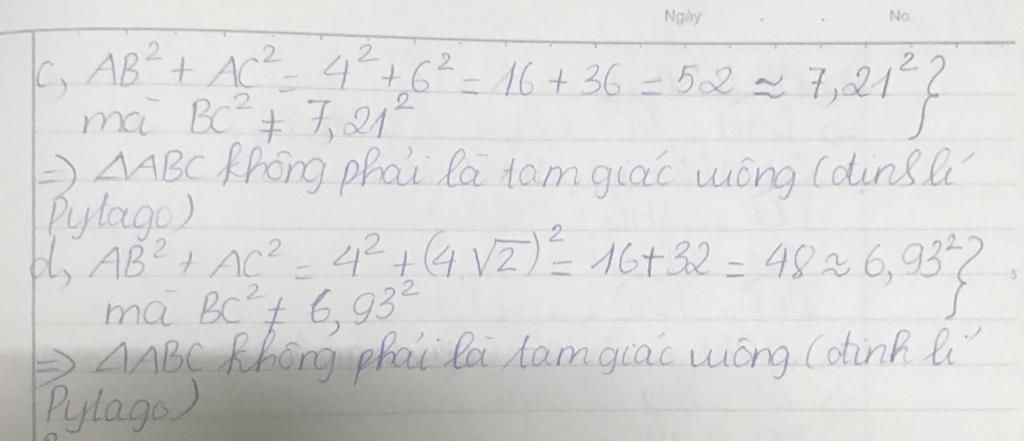 Ngày . . No.
c, AB² + AC² = 4² + 6² = 16 + 36 = 52 ≈ 7,21² }
mà BC² ≠ 7,21²
=> △ABC không phải là tam giác vuông (định lí
Pytago)
d, AB² + AC² = 4² + (4√2)² = 16 + 32 = 48 ≈ 6,93² }
mà BC² ≠ 6,93²
=> △ABC không phải là tam giác vuông (định lí
Pytago)